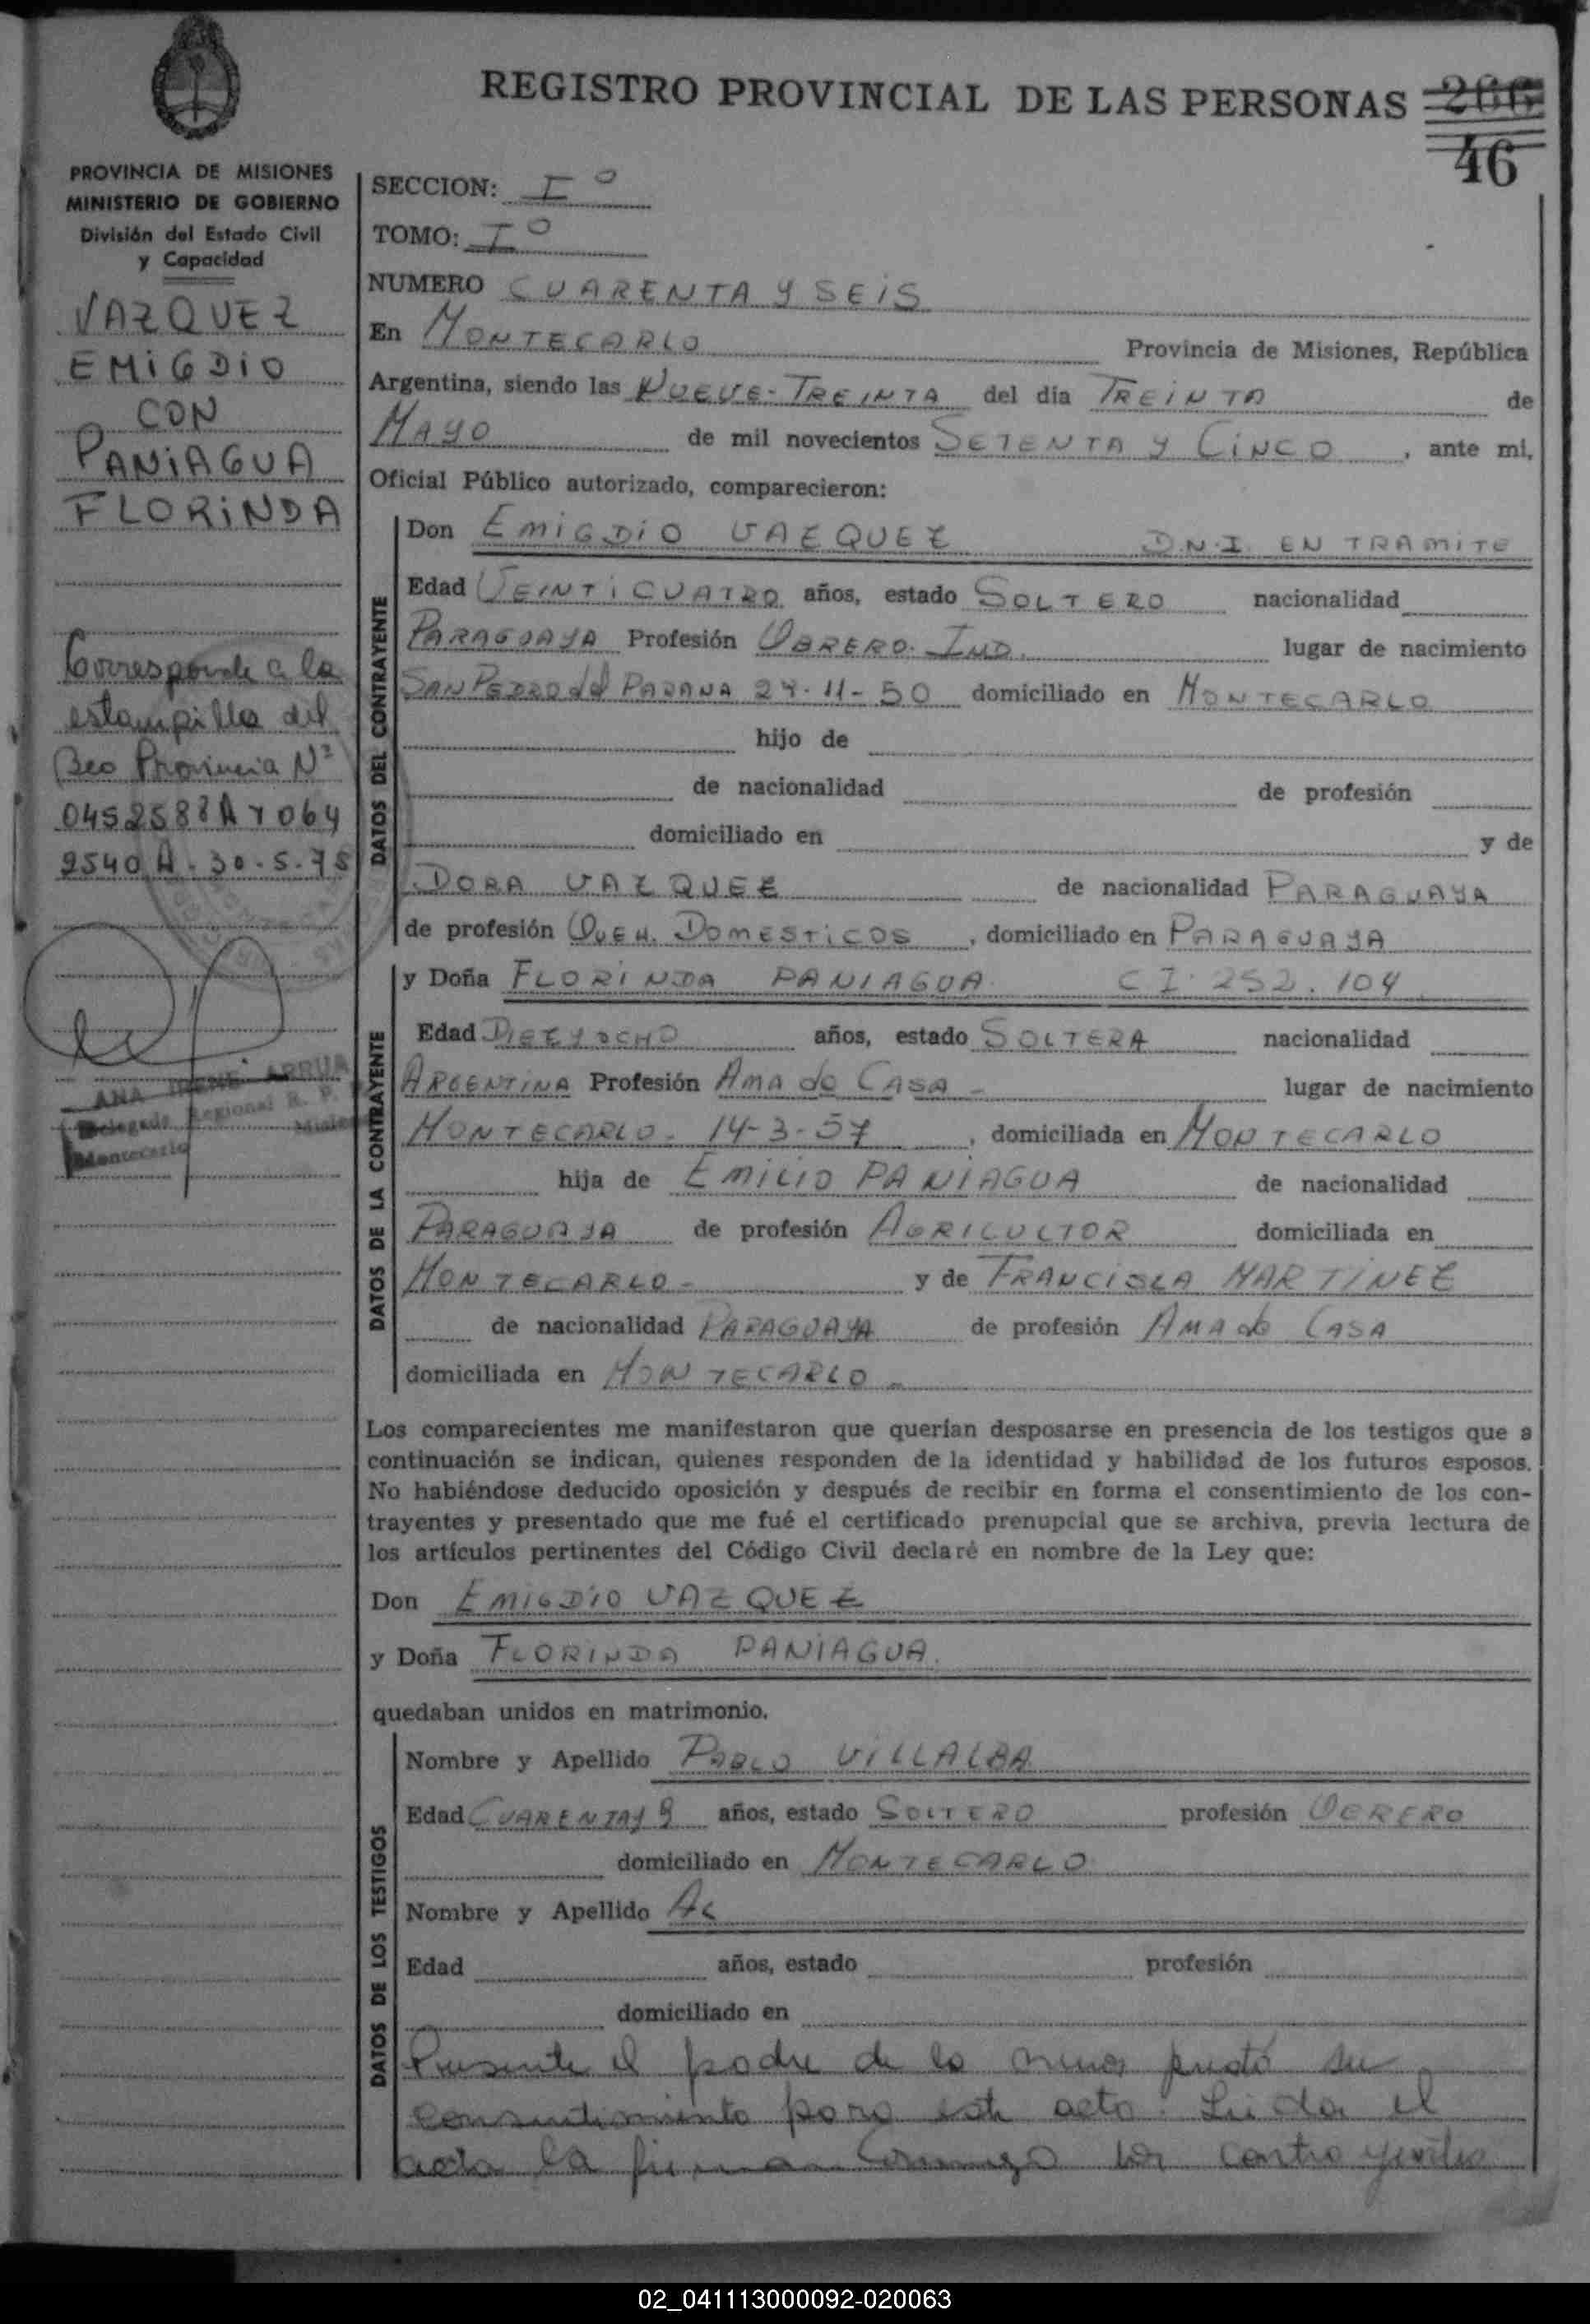 REGISTRO PROVINCIAL DE LAS PERSONAS 266
46
PROVINCIA DE MISIONES
MINISTERIO DE GOBIERNO
División del Estado Civil
y Capacidad
VAZQUEZ
EMIGDIO
CON
PANIAGUA
FLORINDA
Corresponde a la
estampilla del
Bco Provincia Nº
0452588A y 064
2540 A. 30-5-75
ANA IRENE ARRUA
Delegada Regional R. P.
Montecarlo
SECCION: Iº
TOMO: Iº
NUMERO CUARENTA Y SEIS
En MONTECARLO Provincia de Misiones, República
Argentina, siendo las NUEVE-TREINTA del día TREINTA de
MAYO de mil novecientos SETENTA Y CINCO, ante mi,
Oficial Público autorizado, comparecieron:
DATOS DEL CONTRAYENTE
Don EMIGDIO VAZQUEZ D.N.I. EN TRAMITE
Edad VEINTICUATRO años, estado SOLTERO nacionalidad
PARAGUAYA Profesión OBRERO. IND. lugar de nacimiento
SAN PEDRO del PARANA 24-11-50 domiciliado en MONTECARLO
hijo de
de nacionalidad de profesión
domiciliado en y de
DORA VAZQUEZ de nacionalidad PARAGUAYA
de profesión QUEH. DOMESTICOS, domiciliado en PARAGUAYA
DATOS DE LA CONTRAYENTE
y Doña FLORINDA PANIAGUA C I. 252.104
Edad DIEZ Y OCHO años, estado SOLTERA nacionalidad
ARGENTINA Profesión AMA de CASA - lugar de nacimiento
MONTECARLO. 14-3-57, domiciliada en MONTECARLO
hija de EMILIO PANIAGUA de nacionalidad
PARAGUAYA de profesión AGRICULTOR domiciliada en
MONTECARLO- y de FRANCISCA MARTINEZ
de nacionalidad PARAGUAYA de profesión AMA de CASA
domiciliada en MONTECARLO -
Los comparecientes me manifestaron que querían desposarse en presencia de los testigos que a
continuación se indican, quienes responden de la identidad y habilidad de los futuros esposos.
No habiéndose deducido oposición y después de recibir en forma el consentimiento de los con-
trayentes y presentado que me fué el certificado prenupcial que se archiva, previa lectura de
los artículos pertinentes del Código Civil declaré en nombre de la Ley que:
Don EMIGDIO VAZQUEZ
y Doña FLORINDA PANIAGUA.
quedaban unidos en matrimonio.
DATOS DE LOS TESTIGOS
Nombre y Apellido PABLO VILLALBA
Edad CUARENTA Y 9 años, estado SOLTERO profesión OBRERO
domiciliado en MONTECARLO
Nombre y Apellido
Edad años, estado profesión
domiciliado en
Presente el padre de la menor prestó su
consentimiento para este acto. Leida el
acta la firman conmigo los contrayentes
02_041113000092-020063